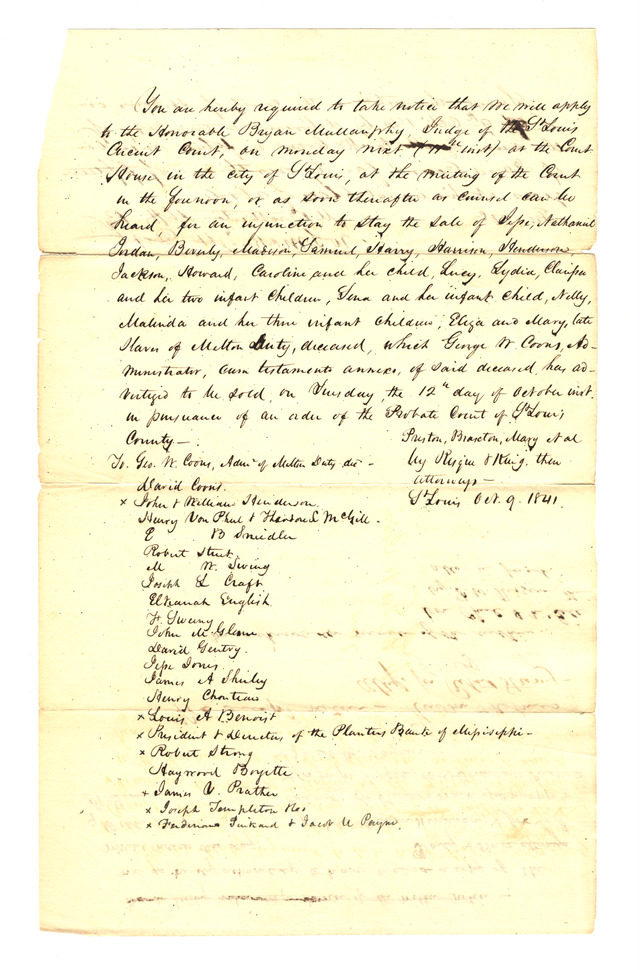 You are hereby required to take notice that we will apply
to the Honorable Bryan Mullanphy, Judge of the St Louis
Circuit Court, on monday next inst) at the Court
House in the city of St Louis, at the meeting of the Court
in the forenoon, or as soon thereafter as counsel can be
heard, for an injunction to stay the sale of Jesse, Nathaniel
Jordan, Beverly, Madison, Samuel, Harry, Harrison, Henderson
Jackson, Howard, Caroline and her child, Lucy, Lydia, Clarissa
and her two infant children, Lena and her infant child, Nelly,
Malinda and her three infant children, Eliza and Mary, late
Slaves of Milton Duty, deceased, which George W. Coons, Ad-
ministrator, cum testamento annexo, of said deceased, has ad-
vertized to be sold, on Tuesday the 12th day of October inst.
in pursuance of an order of the Probate Court of St Louis
County—
Preston, Braxton, Mary et al
To. Geo. W. Coons, Admr of Milton Duty dec -
by Risque & King, their
attorneys -
David Coons.
St Louis Oct. 9. 1841.
x John & William Henderson.
Henry Von Phul & McGill.
E B Smedler
Robert Street
M W. Ewing
Joseph L Craft
Elkanah English
F. Sweny
John M. Glenn
David Gentry.
Jesse Jones.
James A Shirley
Henry Chouteau
x Louis A Benoist
x President & directors of the Planters Bank of Mississippi -
x Robert Strong
Haywood Boyette
x James V. Prather
x Joseph Templeton
x Pinkard & Jacob U Payne.